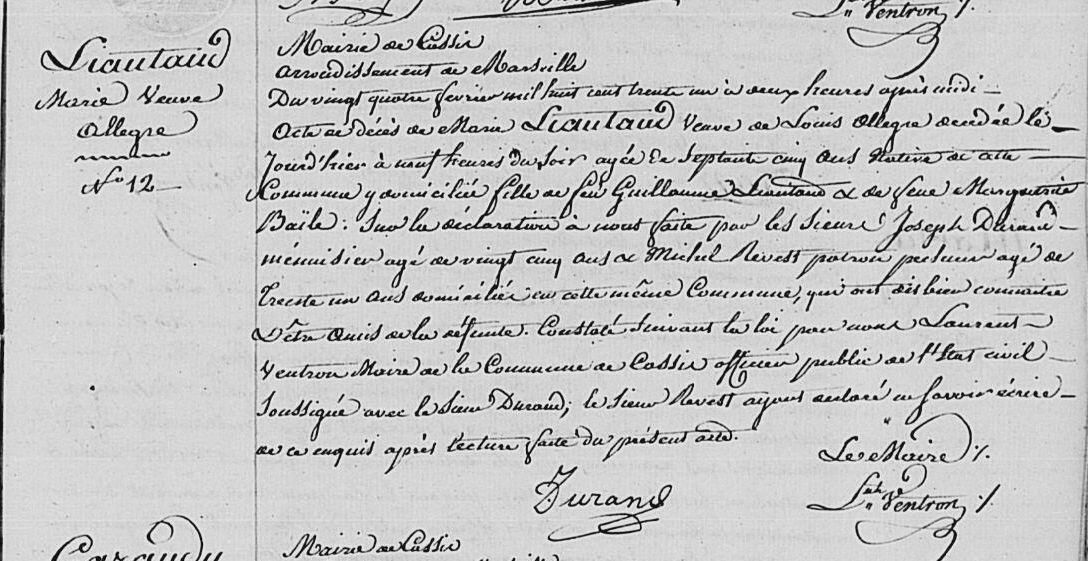 Lt. Ventron /.
Liautaud
Marie Veuve
Allegre
No 12
Mairie de Cassis
arrondissement de Marseille
Du vingt quatre fevrier mil huit cent trente un à deux heures après midi
Acte de décès de Marie Liautaud Veuve de Louis Allegre decedée le
Jourd'hier à neuf heures du soir agée de septante cinq ans Native de cette
Commune y domiciliée fille de feu Guillaume Liautaud & de feue Margueritte
Baïle : Sur la déclaration à nous faite par les Sieurs Joseph Durand
ménuisier agé de vingt cinq ans & Michel Revest patron pecheur agé de
Trente un ans domiciliés en cette même Commune, qui ont dis bien connaitre
d'être amis de la défunte. Constaté suivant la loi par nous Laurent
Ventron Maire de la Commune de Cassis officier public de l'état civil
Soussigné avec le Sieur Durand; le Sieur Revest ayant déclaré ne savoir écrire
de ce enquis après lecture faite du présent acte.
Le Maire /.
Durand
Lt. Ventron /.
Mairie de Cassis